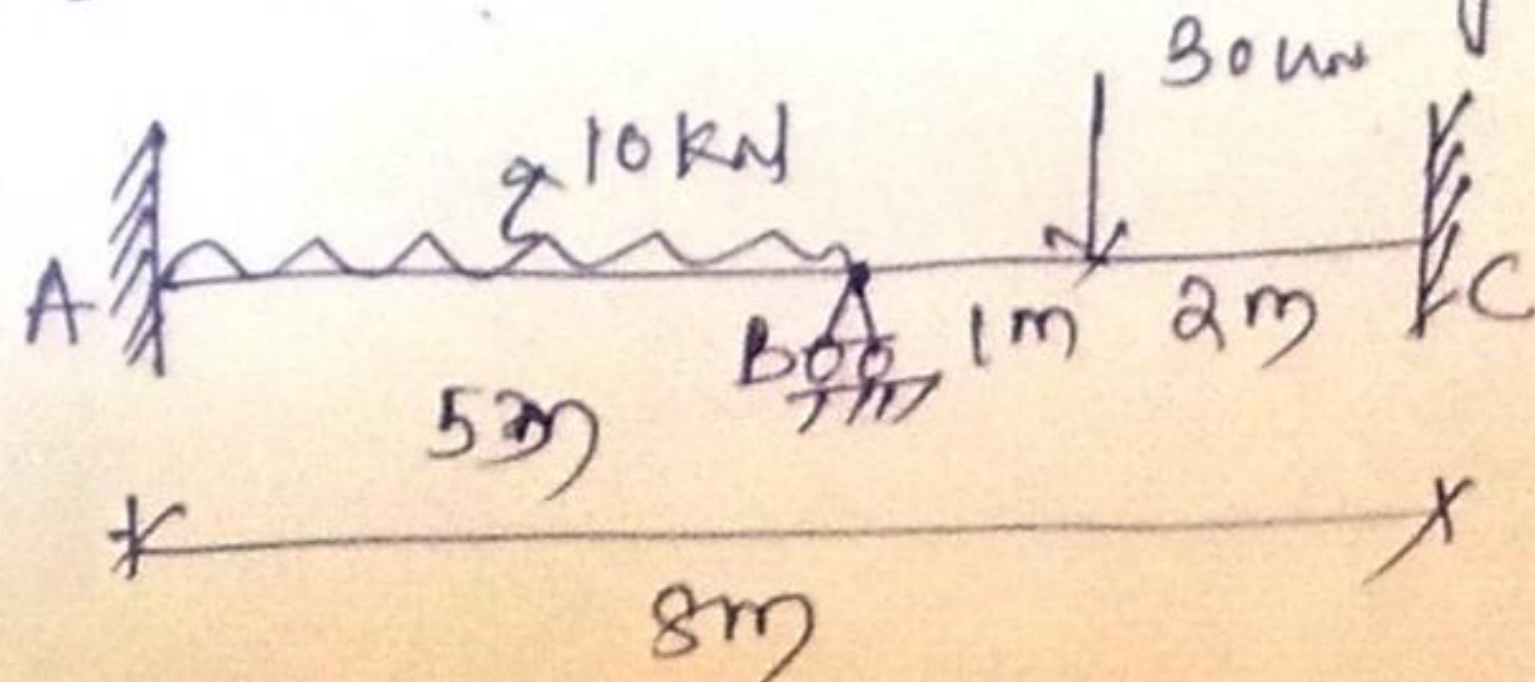 30 kN
10 kN
A
B
1m
2m
C
5m
8m